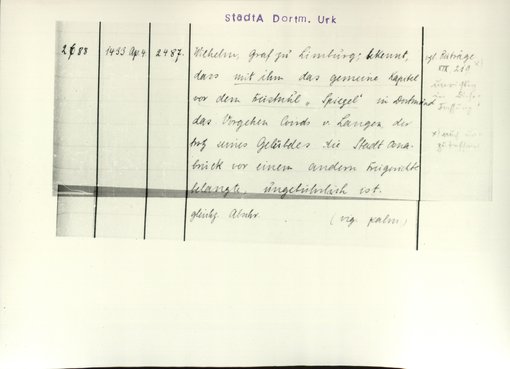 StadtA Dortm. Urk
2688 1433 Ap 4 2487. Wilhelm, Graf zu Limburg, bekennt,
dass mit ihm das gemeine Kapitel
vor dem Freistuhl „Spiegel" in Dortmund
das Vorgehen Cords v. Langen, der
trotz seines Gelübdes die Stadt Osna-
brück vor einem andern Freigericht
belangte, ungebührlich ist.
gleichz. Abschr.
vgl. Beiträge